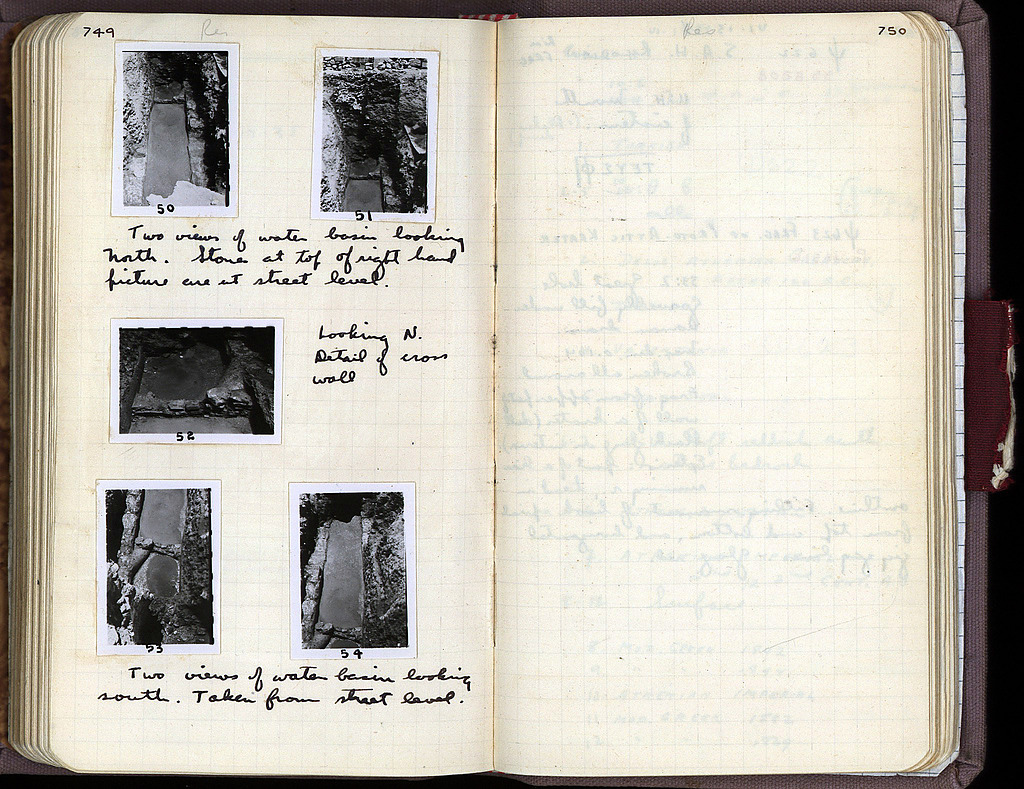 749
Res
50
51
Two views of water basin looking
North. Stones at top of right hand
picture are at street level.
Looking N.
Detail of cross
wall
52
53
54
Two views of water basin looking
south. Taken from street level.
Res
750